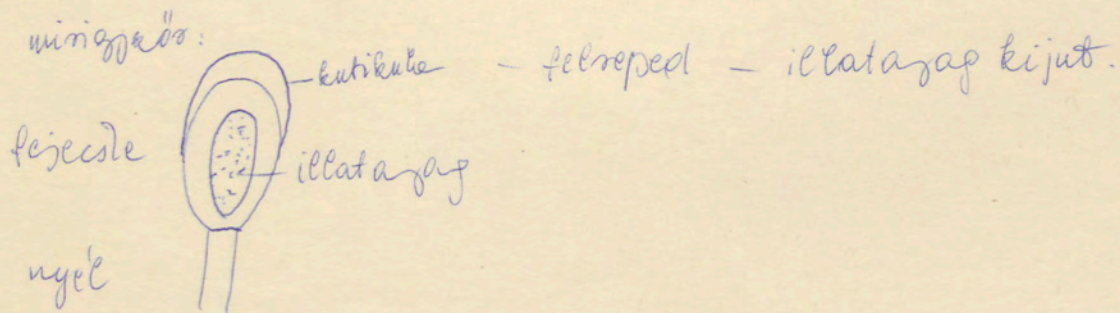 mirigyszőr:
kutikula – felreped – illatanyag kijut.
fejecske
illatanyag
nyél